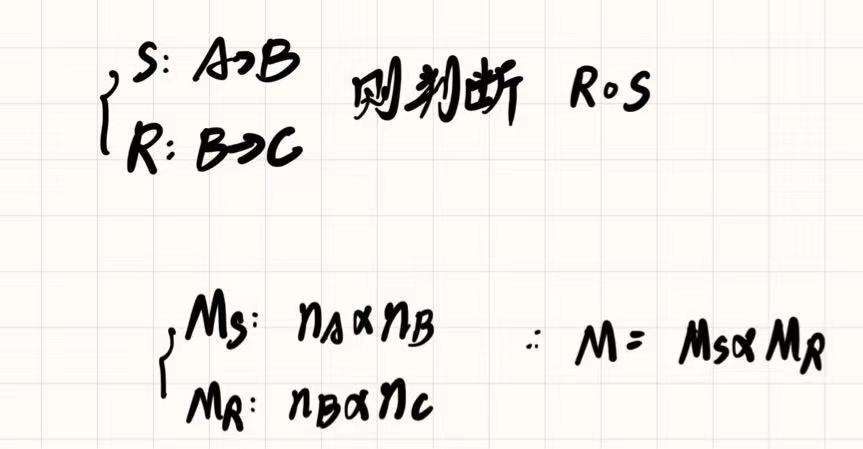 S: A→B
R: B→C
则判断 R∘S
M_S: n_A × n_B
M_R: n_B × n_C
∴ M = M_S × M_R